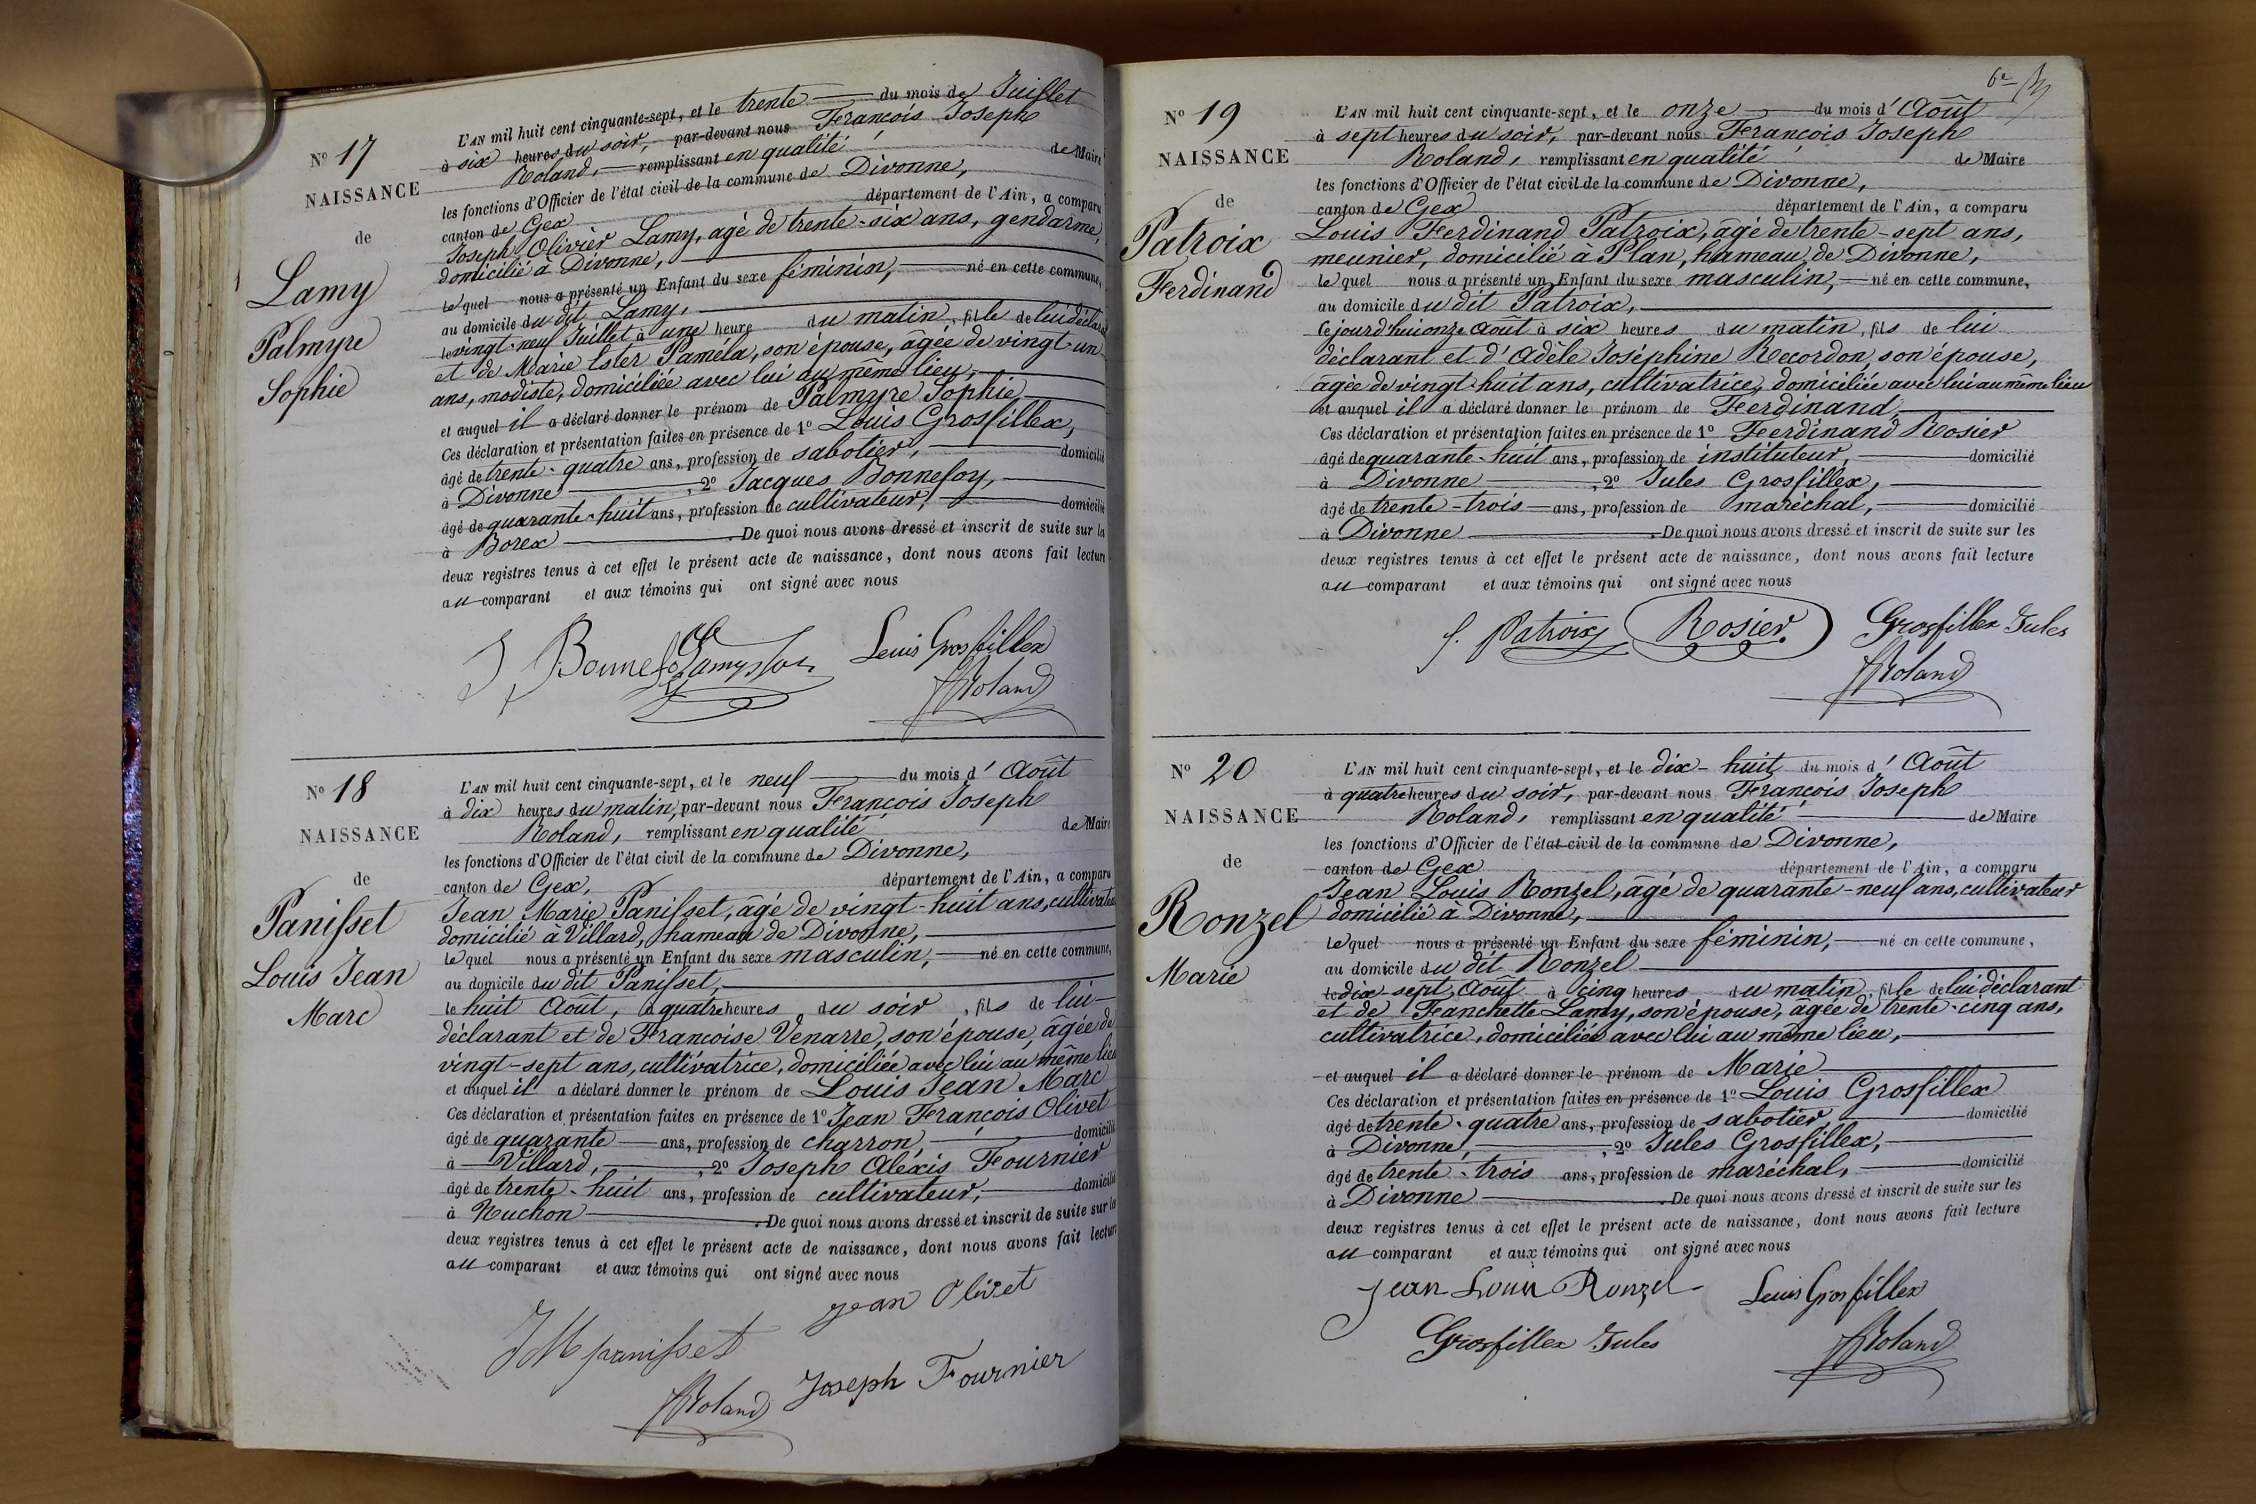 N° 17
NAISSANCE
de
Lamy
Palmyre
Sophie
L'AN mil huit cent cinquante-sept, et le trente du mois de Juillet
à six heures du soir, par-devant nous François Joseph
Roland, remplissant en qualité de Maire
les fonctions d'Officier de l'état civil de la commune de Divonne,
canton de Gex département de l'Ain, a comparu
Joseph Olivier Lamy, agé de trente-six ans, gendarme,
domicilié à Divonne,
lequel nous a présenté un Enfant du sexe féminin, né en cette commune,
au domicile du dit Lamy,
le vingt-neuf Juillet à une heure du matin, fille de lui déclarant
et de Marie Ester Paméla, son épouse, âgée de vingt-un
ans, modiste, domiciliée avec lui au même lieu,
et auquel il a déclaré donner le prénom de Palmyre Sophie,
Ces déclaration et présentation faites en présence de 1° Louis Grosfillex,
âgé de trente-quatre ans, profession de sabotier, domicilié
à Divonne, 2° Jacques Bonnefoy,
âgé de quarante-huit ans, profession de cultivateur, domicilié
à Borex. De quoi nous avons dressé et inscrit de suite sur les
deux registres tenus à cet effet le présent acte de naissance, dont nous avons fait lecture
au comparant et aux témoins qui ont signé avec nous
Louis Grosfillex
Roland
N° 18
NAISSANCE
de
Panisset
Louis Jean
Marc
L'AN mil huit cent cinquante-sept, et le neuf du mois d'Août
à dix heures du matin, par-devant nous François Joseph
Roland, remplissant en qualité de Maire
les fonctions d'Officier de l'état civil de la commune de Divonne,
canton de Gex, département de l'Ain, a comparu
Jean Marie Panisset, âgé de vingt-huit ans, cultivateur
domicilié à Villard, hameau de Divonne,
lequel nous a présenté un Enfant du sexe masculin, né en cette commune,
au domicile du dit Panisset,
le huit Août, à quatre heures du soir, fils de lui
déclarant et de Françoise Venarre, son épouse, âgée de
vingt-sept ans, cultivatrice, domiciliée avec lui au même lieu
et auquel il a déclaré donner le prénom de Louis Jean Marc
Ces déclaration et présentation faites en présence de 1° Jean François Olivet
âgé de quarante ans, profession de charron, domicilié
à Villard, 2° Joseph Aléxis Fournier
âgé de trente-huit ans, profession de cultivateur, domicilié
à Ruchon. De quoi nous avons dressé et inscrit de suite sur les
deux registres tenus à cet effet le présent acte de naissance, dont nous avons fait lecture
au comparant et aux témoins qui ont signé avec nous
Jean Olivet
JM panisset
Joseph Fournier
Roland
6e
N° 19
NAISSANCE
de
Patroix
Ferdinand
L'AN mil huit cent cinquante-sept, et le onze du mois d'Août
à sept heures du soir, par-devant nous François Joseph
Roland, remplissant en qualité de Maire
les fonctions d'Officier de l'état civil de la commune de Divonne,
canton de Gex département de l'Ain, a comparu
Louis Ferdinand Patroix, âgé de trente-sept ans,
meunier, domicilié à Plan, hameau de Divonne,
lequel nous a présenté un Enfant du sexe masculin, né en cette commune,
au domicile du dit Patroix,
cejourd'hui onze Août à six heures du matin, fils de lui
déclarant et d'Adèle Joséphine Recordon, son épouse,
âgée de vingt-huit ans, cultivatrice, domiciliée avec lui au même lieu
et auquel il a déclaré donner le prénom de Ferdinand,
Ces déclaration et présentation faites en présence de 1° Ferdinand Rosier
âgé de quarante-huit ans, profession de instituteur, domicilié
à Divonne, 2° Jules Grosfillex,
âgé de trente-trois ans, profession de maréchal, domicilié
à Divonne. De quoi nous avons dressé et inscrit de suite sur les
deux registres tenus à cet effet le présent acte de naissance, dont nous avons fait lecture
au comparant et aux témoins qui ont signé avec nous
Patroix Rosier. Grosfillex Jules
Roland
N° 20
NAISSANCE
de
Ronzel
Marie
L'AN mil huit cent cinquante-sept, et le dix-huit du mois d'Août
à quatre heures du soir, par-devant nous François Joseph
Roland, remplissant en qualité de Maire
les fonctions d'Officier de l'état civil de la commune de Divonne,
canton de Gex département de l'Ain, a comparu
Jean Louis Ronzel, âgé de quarante-neuf ans, cultivateur
domicilié à Divonne,
lequel nous a présenté un Enfant du sexe féminin, né en cette commune,
au domicile du dit Ronzel
le dix-sept Août à cinq heures du matin, fille de lui déclarant
et de Franchette Lamy, son épouse, âgée de trente-cinq ans,
cultivatrice, domiciliée avec lui au même lieu,
et auquel il a déclaré donner le prénom de Marie
Ces déclaration et présentation faites en présence de 1° Louis Grosfillex
âgé de trente-quatre ans, profession de sabotier, domicilié
à Divonne, 2° Jules Grosfillex,
âgé de trente-trois ans, profession de maréchal, domicilié
à Divonne. De quoi nous avons dressé et inscrit de suite sur les
deux registres tenus à cet effet le présent acte de naissance, dont nous avons fait lecture
au comparant et aux témoins qui ont signé avec nous
Jean Louis Ronzel Louis Grosfillex
Grosfillex Jules Roland